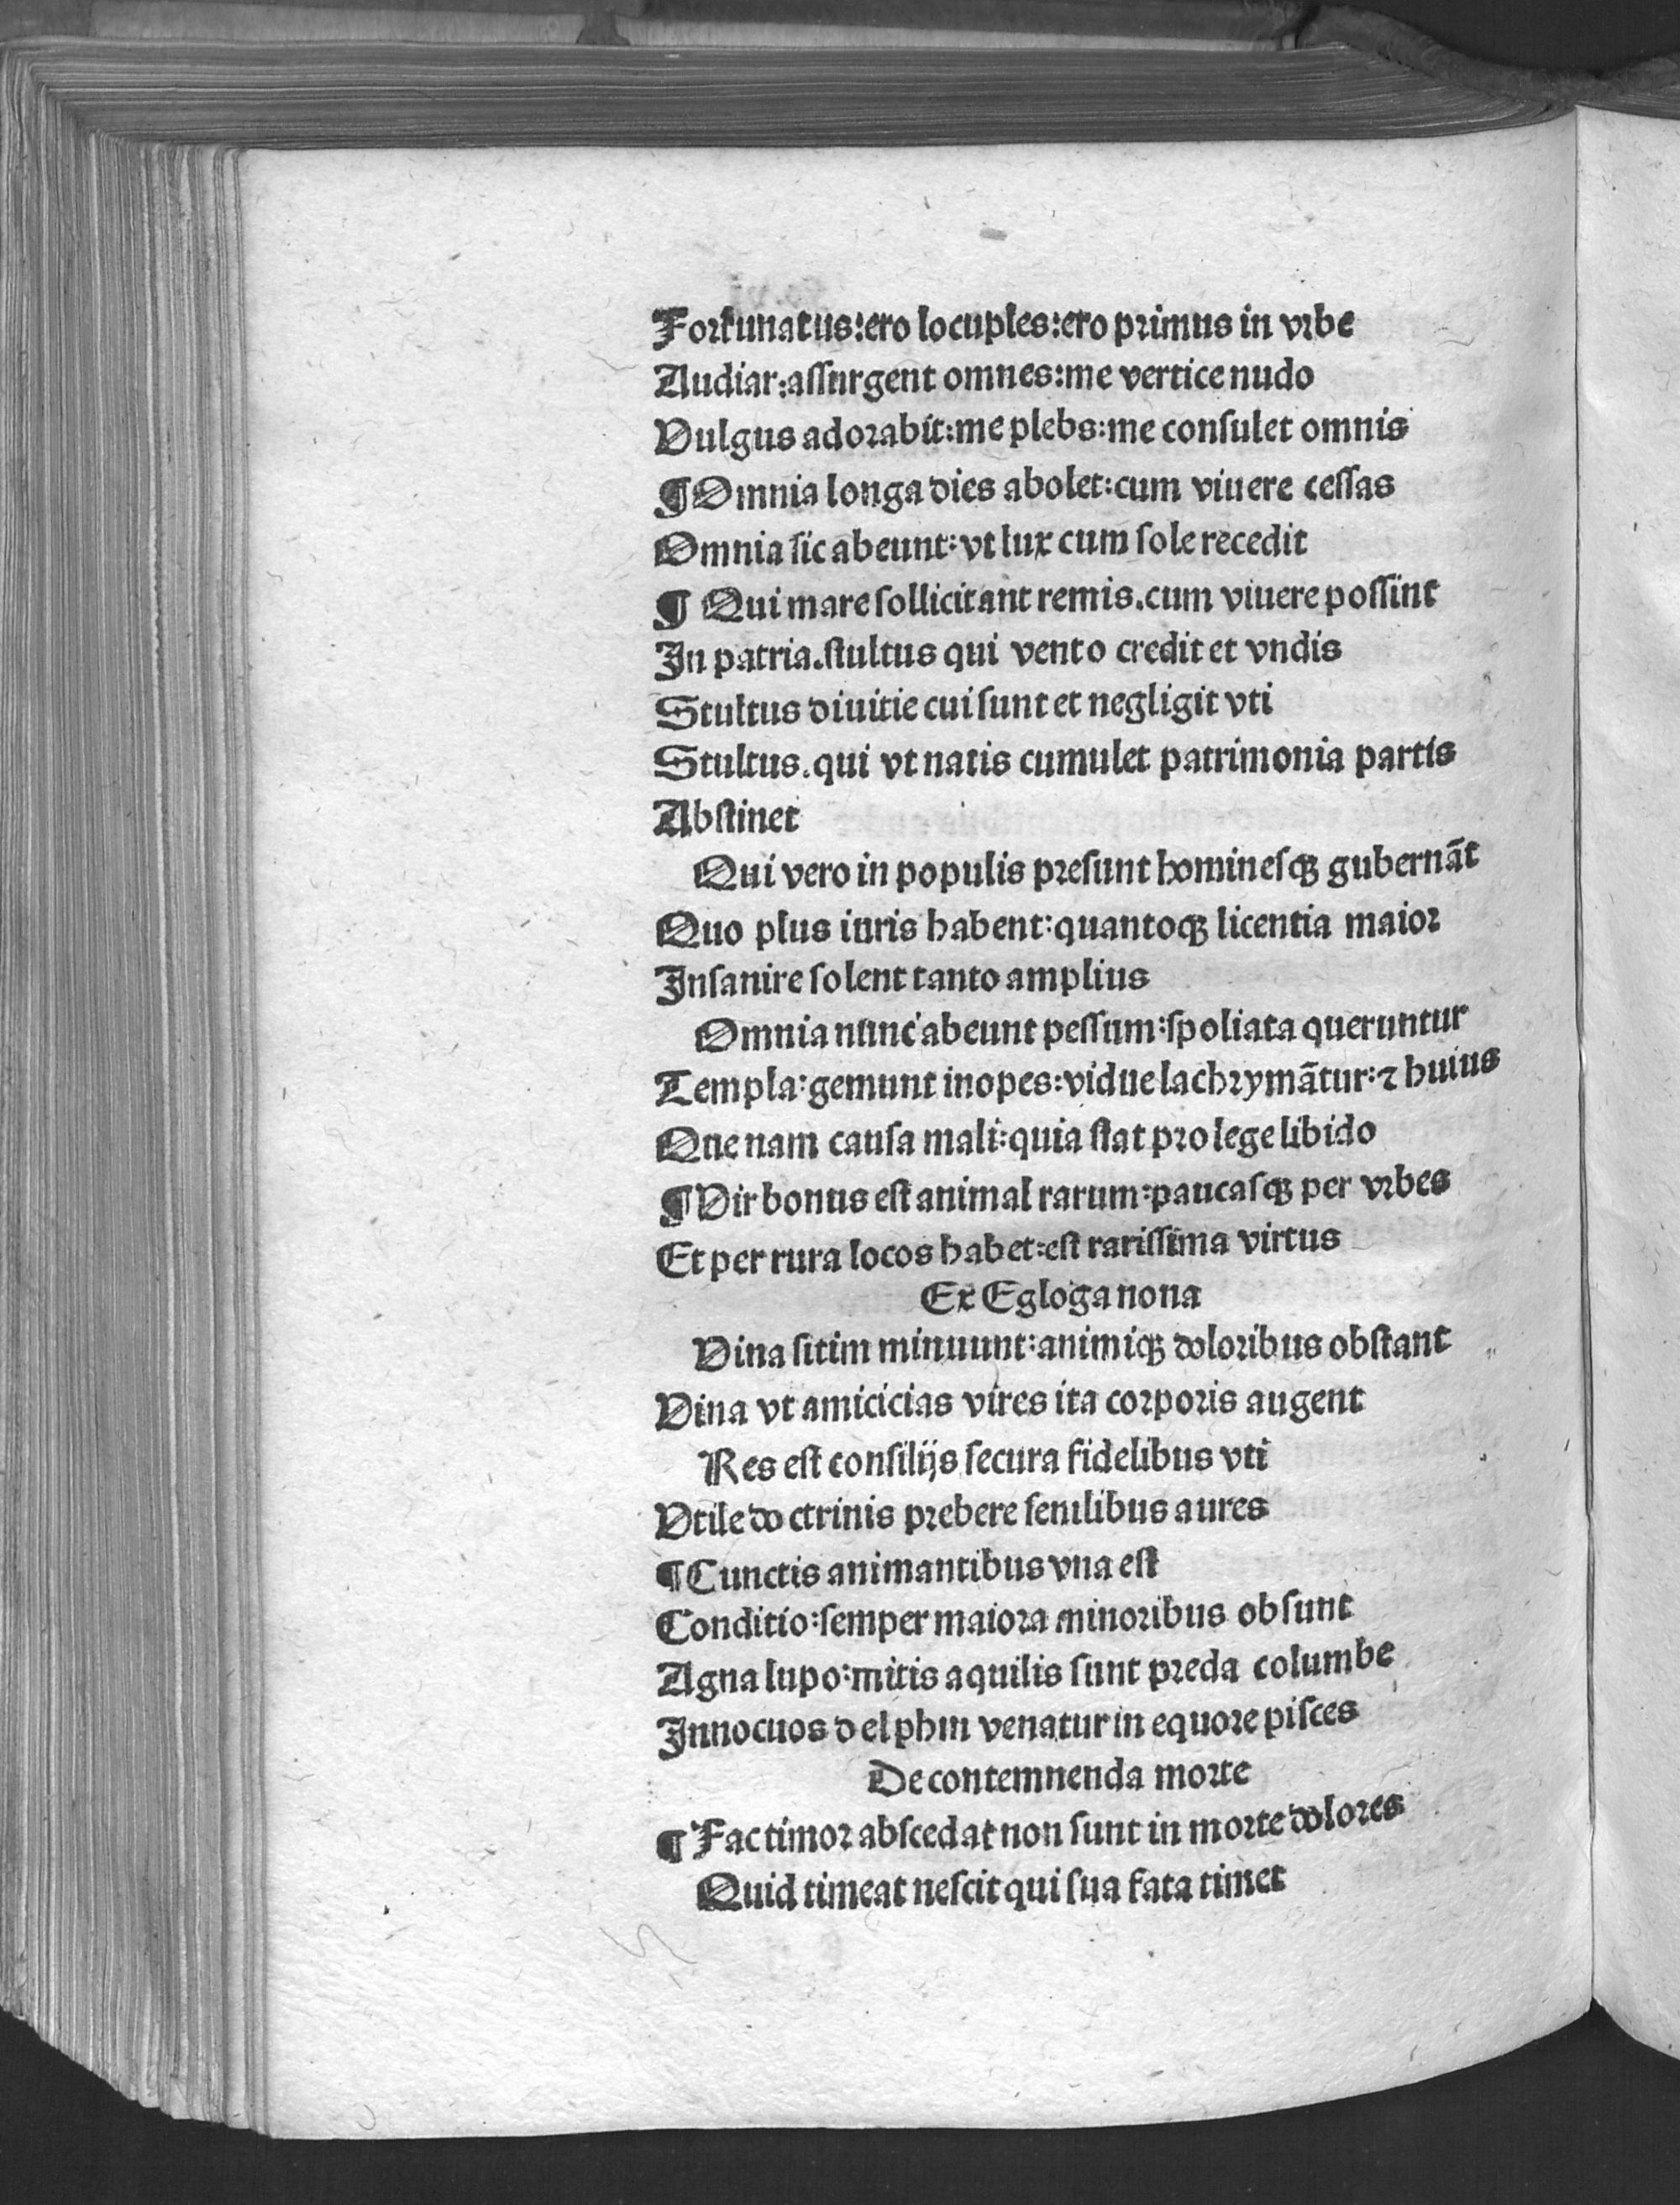 Fortunatus:ero locuples:ero primus in vrbe
Audiar:assurgent omnes:me vertice nudo
Vulgus adorabit:me plebs:me consulet omnis
¶Omnia longa dies abolet:cum viuere cessas
Omnia sic abeunt:vt lux cum sole recedit
¶ Qui mare sollicitant remis.cum viuere possint
In patria.stultus qui vento credit et vndis
Stultus diuitie cui sunt et negligit vti
Stultus.qui vt natis cumulet patrimonia partis
Abstinet
Qui vero in populis presunt hominesqꝫ gubernãt
Quo plus iuris habent:quantoqꝫ licentia maior
Insanire solent tanto amplius
Omnia nunc abeunt pessum:spoliata queruntur
Templa:gemunt inopes:vidue lachrymãtur:⁊ huius
Que nam causa mali:quia stat pro lege libido
¶Vir bonus est animal rarum:paucasqꝫ per vrbes
Et per rura locos habet:est rarissima virtus
Ex Egloga nona
Vina sitim minuunt:animiqꝫ doloribus obstant
Vina vt amicicias vires ita corporis augent
Res est consilijs secura fidelibus vti
Vtile doctrinis prebere senilibus aures
¶Cunctis animantibus vna est
Conditio:semper maiora minoribus obsunt
Agna lupo:mitis aquilis sunt preda columbe
Innocuos delphin venatur in equore pisces
De contemnenda morte
¶ Fac timor abscedat non sunt in morte dolores
Quid timeat nescit qui sua fata timet